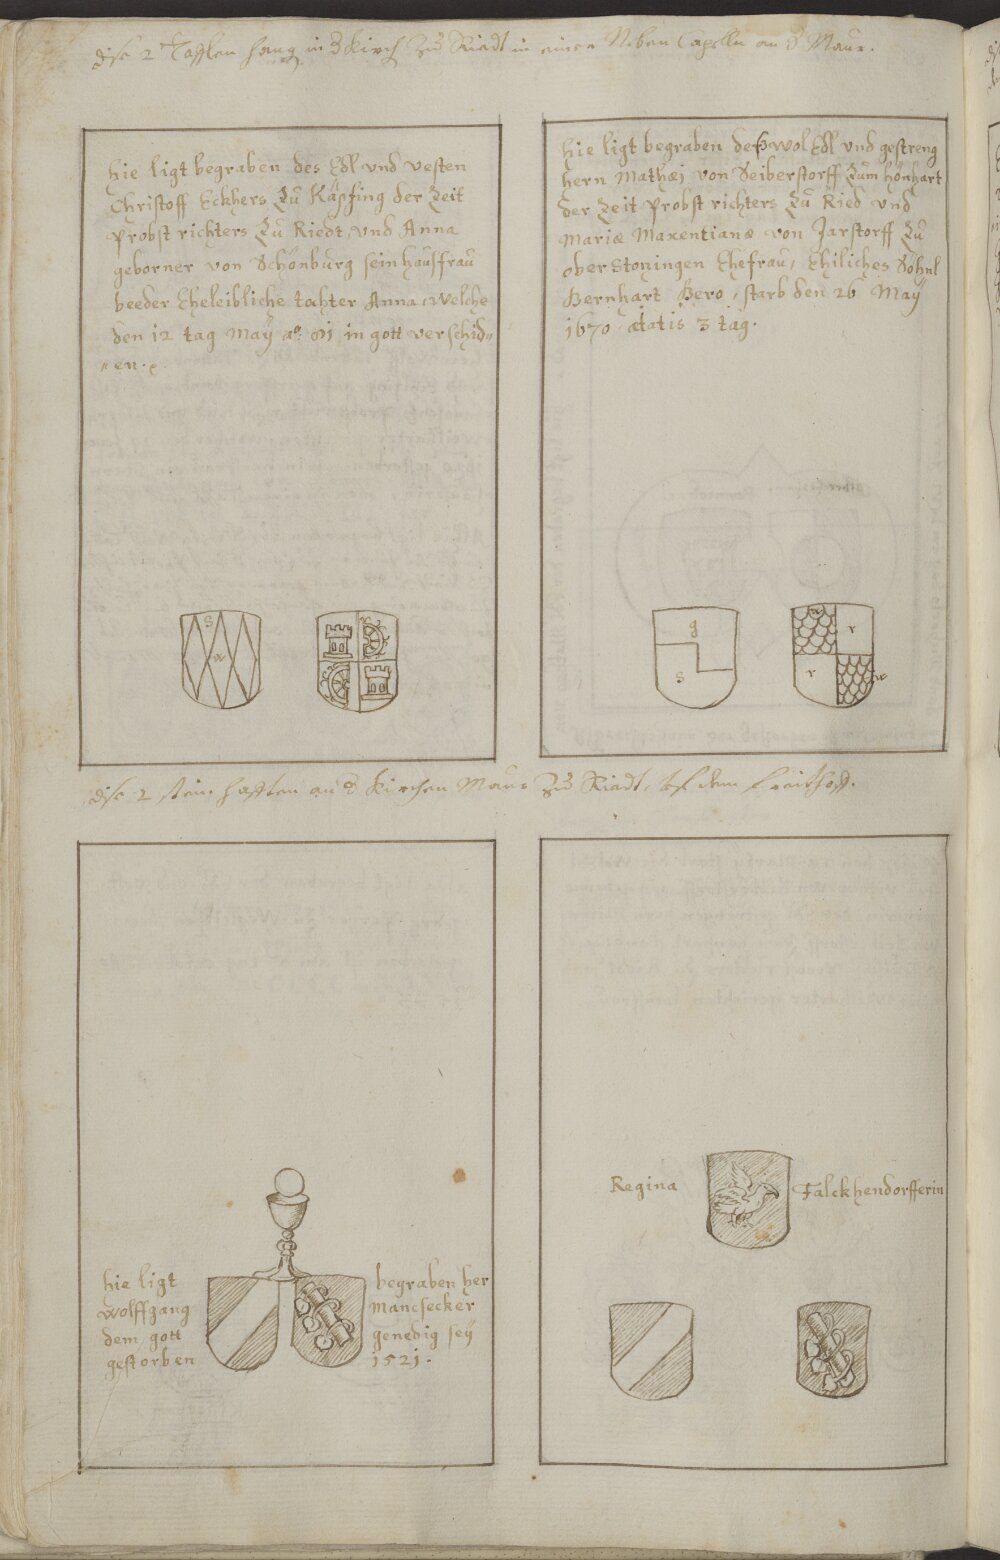 dise 2 Tafflen hang in d Kirch Zu Riedt in einer Neben Capelln an d Maur.
hie ligt begraben des Edl vnd vesten
Christoff Eckhers Zu Käpfing der Zeit
Probst richters Zu Riedt, vnd Anna
geborner von Schönburg sein hausfrau
beeder Eheleibliche tochter Anna, welche
den 12 tag Maÿ aº: 81 in gott verschid„
„en.
hie ligt begraben deß wol Edl vnd gestreng
hern Mathæj von Seiberstorff Zum hönhart
der Zeit Probst richters Zu Ried vnd
Mariæ Maxentianæ von Jarstorff Zu
ober Stoningen Ehefrau, Ehiliches Söhnl
Bernhart Bero, starb den 26 Maÿ
1670 ætatis 3 tag.
S
w
g
s
w
r
r
w
dise 2 stein hafften an d Kirchen Maur Zu Riedt, auf dem freithoff.
hie ligt
wolffgang
dem gott
gestorben
begraben her
Mancsecker
genedig seÿ
1521.
Regina
Falckhendorfferin